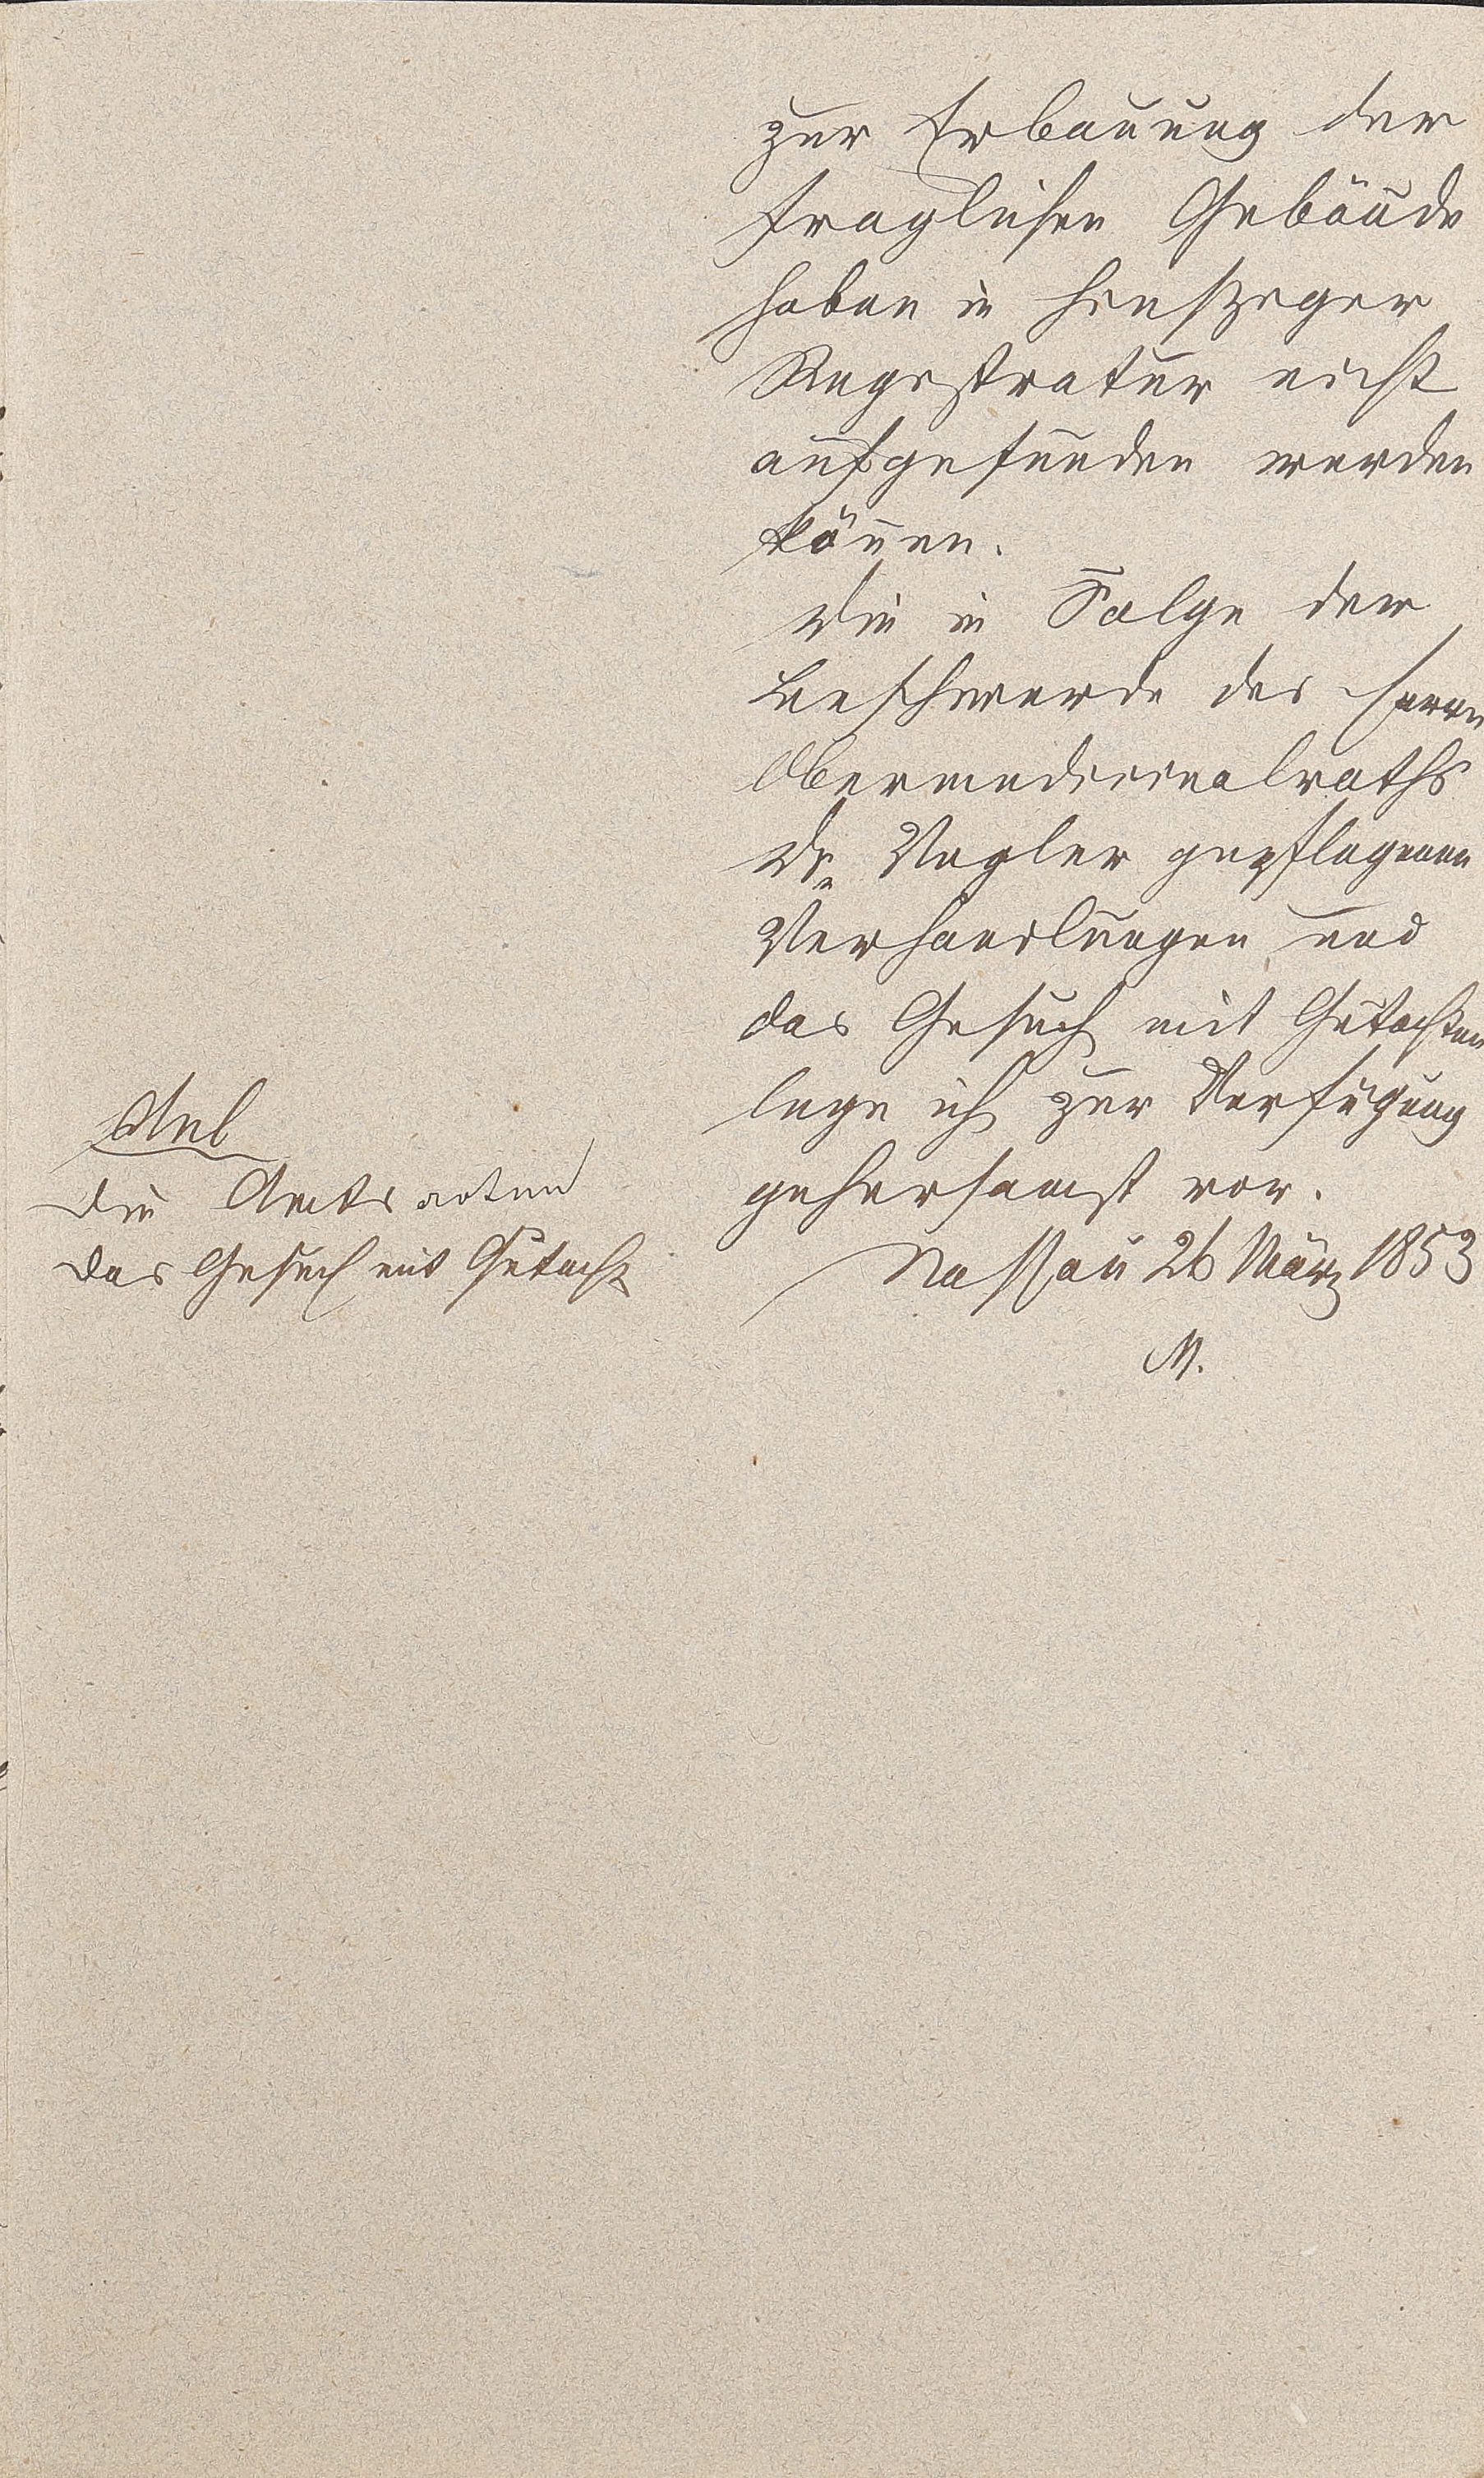 zur Erbauung der
fraglichen Gebäude
haben in hiesiger
Registratur nicht
aufgefunden werden
können.
Die in Folge der
Beschwerde des Herrn
Obermedicinalraths
Dr Vogler gepflogenen
Verhandlungen und
das Gesuch mit Gutachten
lege ich zur Verfügung
gehorsamst vor.
Nassau 26 März 1853
M.
Anl
die Amtsacten
das Gesuch mit Gutacht